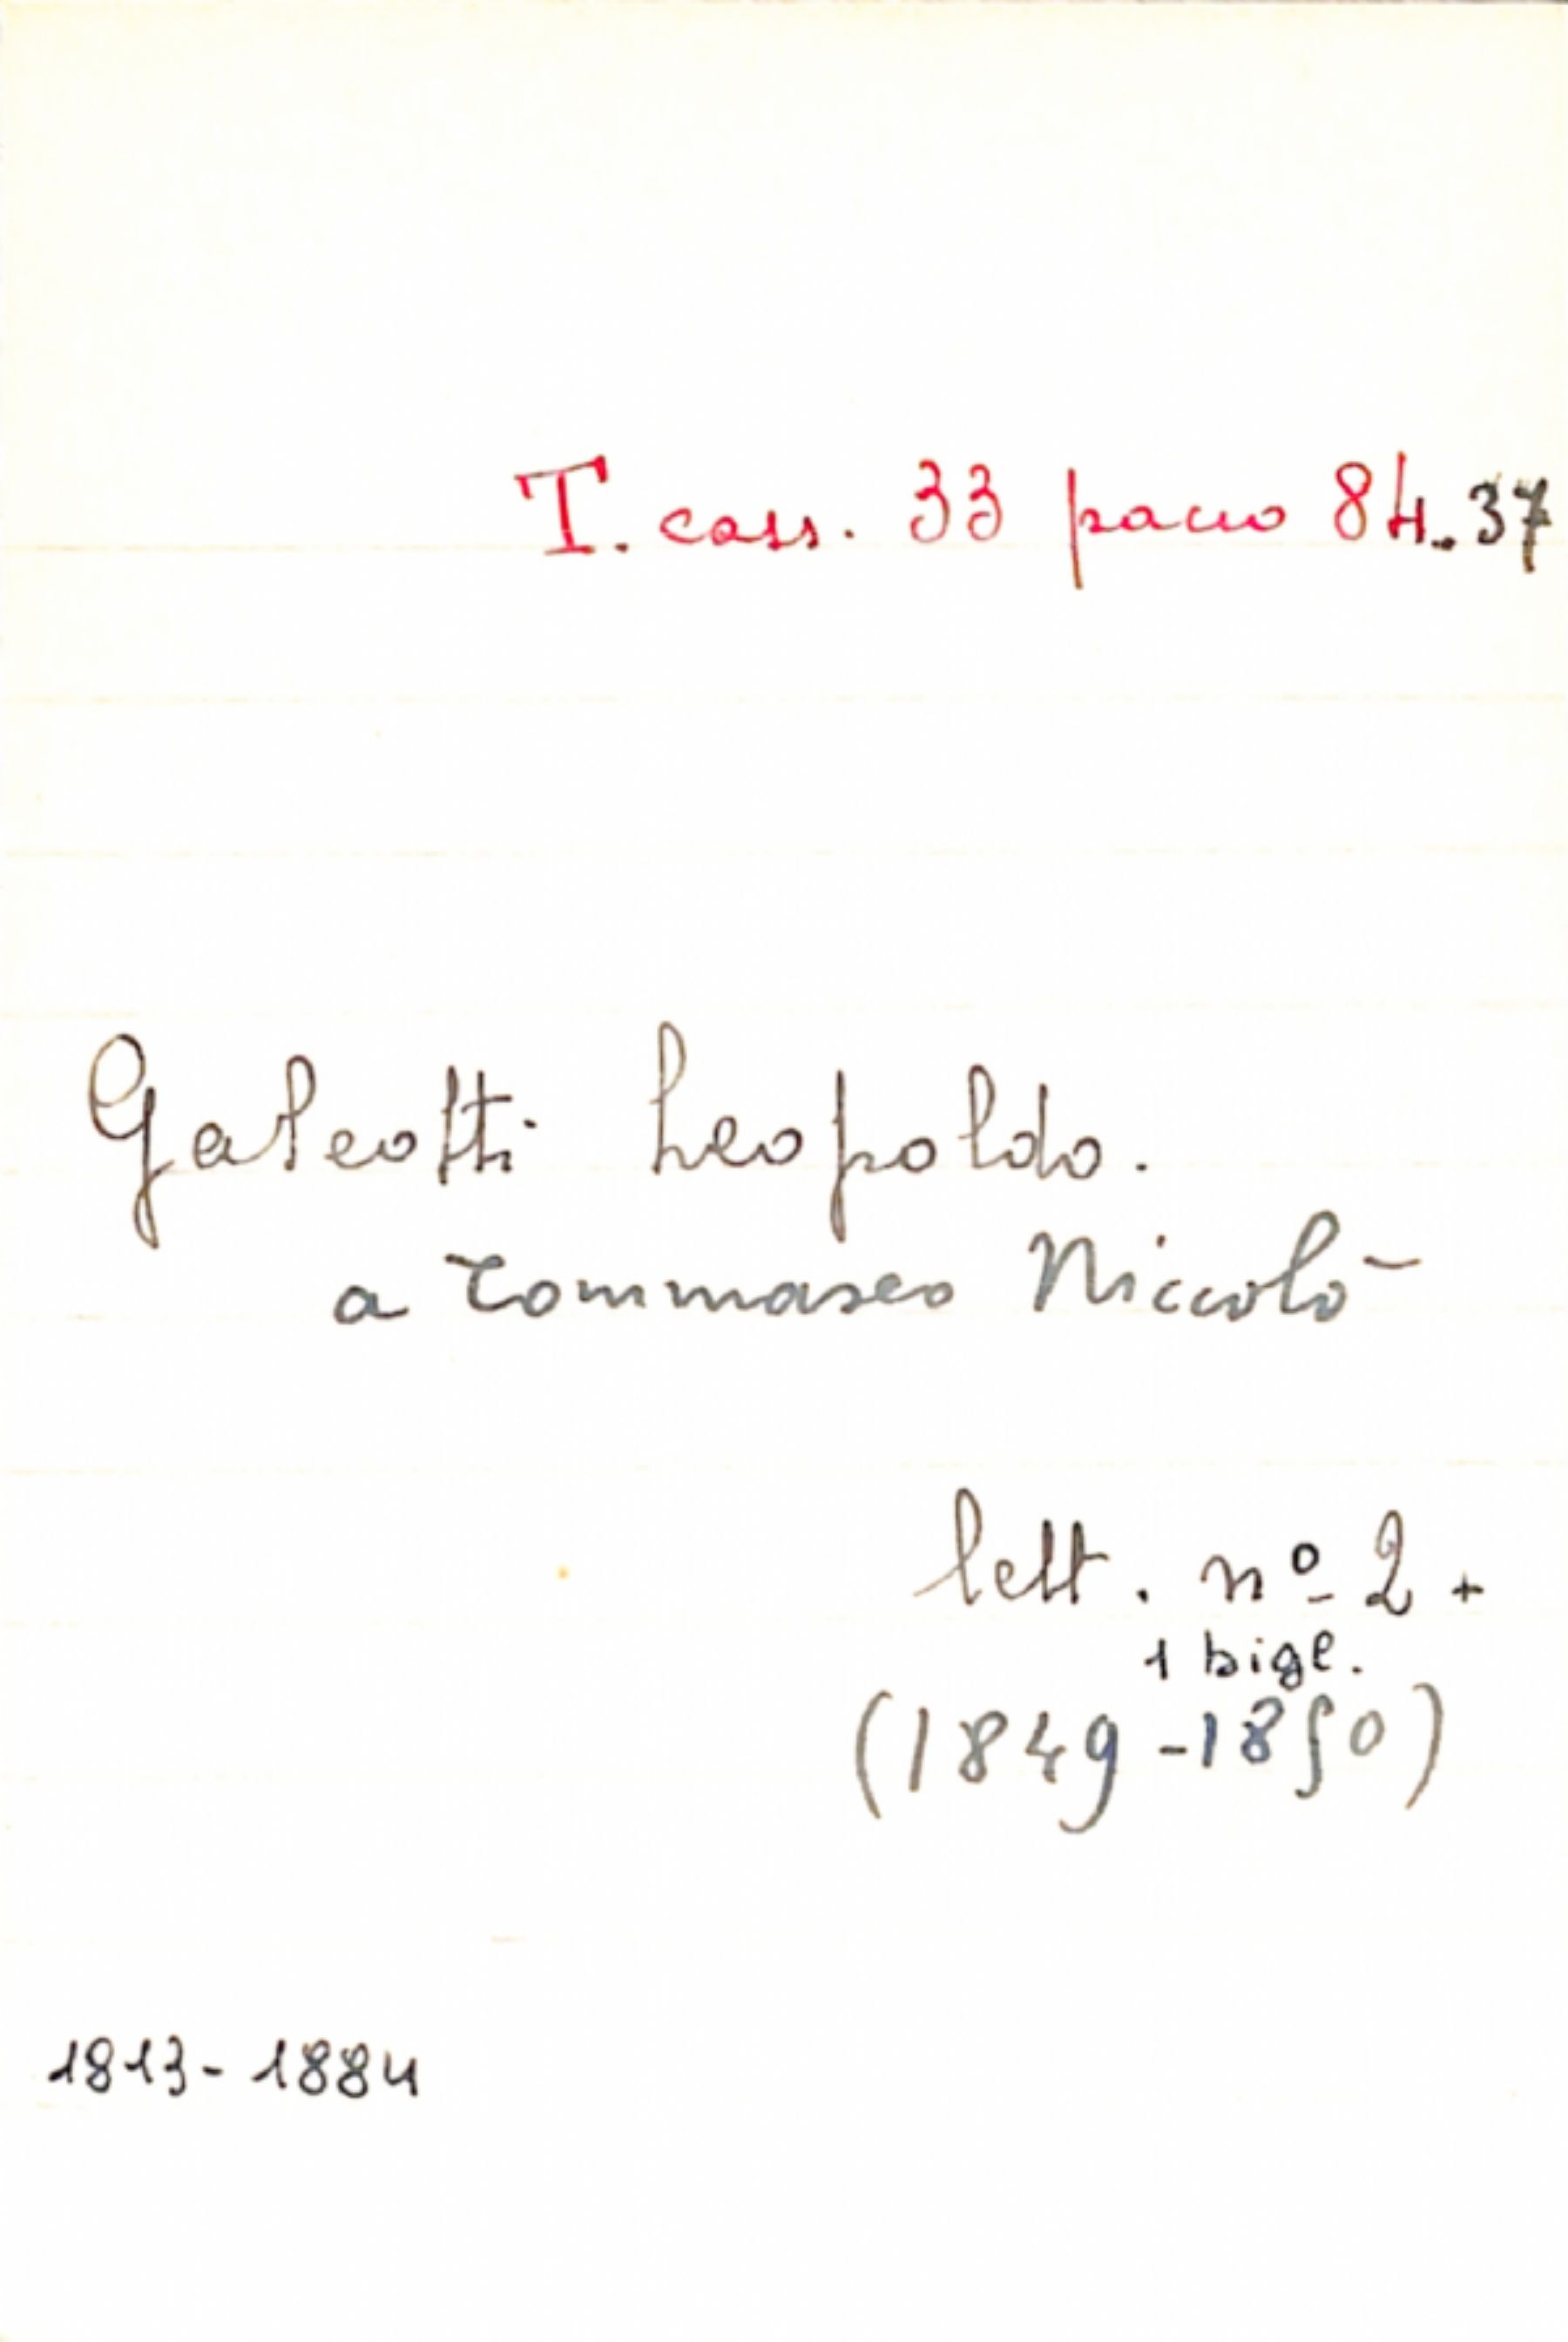 T. cass. 33 pacco 84.37
Galeotti Leopoldo.
a Tommaseo Niccolò
lett. nº 2 +
1 bigl.
(1849-1850)
1813-1884